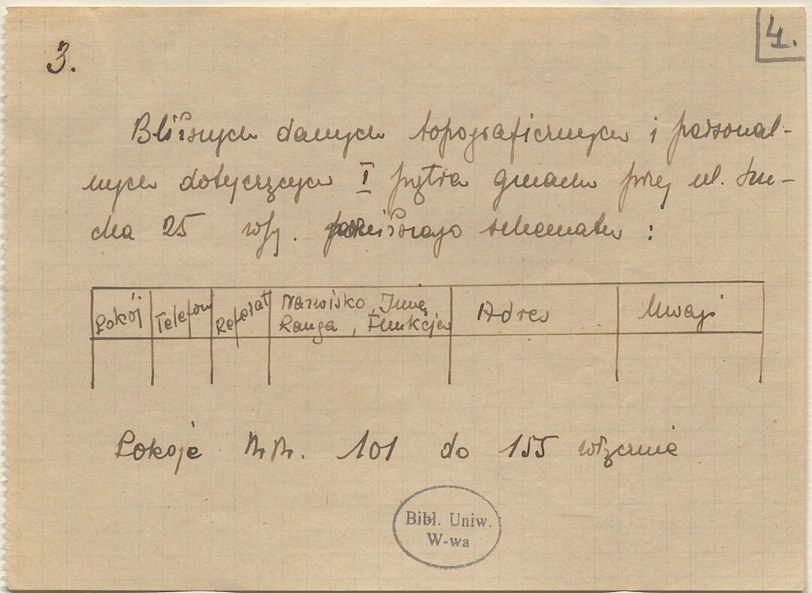 3.
4.
Bliższych danych topograficznych i personal-
nych dotyczących I piętra gmachu przy ul. Szu-
cha 25 wg. poniższego schematu :
Pokój Telefon Referat Nazwisko, Imię, Ranga, Funkcja Adres Uwagi
Pokoje NrNr. 101 do 155 włącznie
Bibl. Uniw.
W-wa